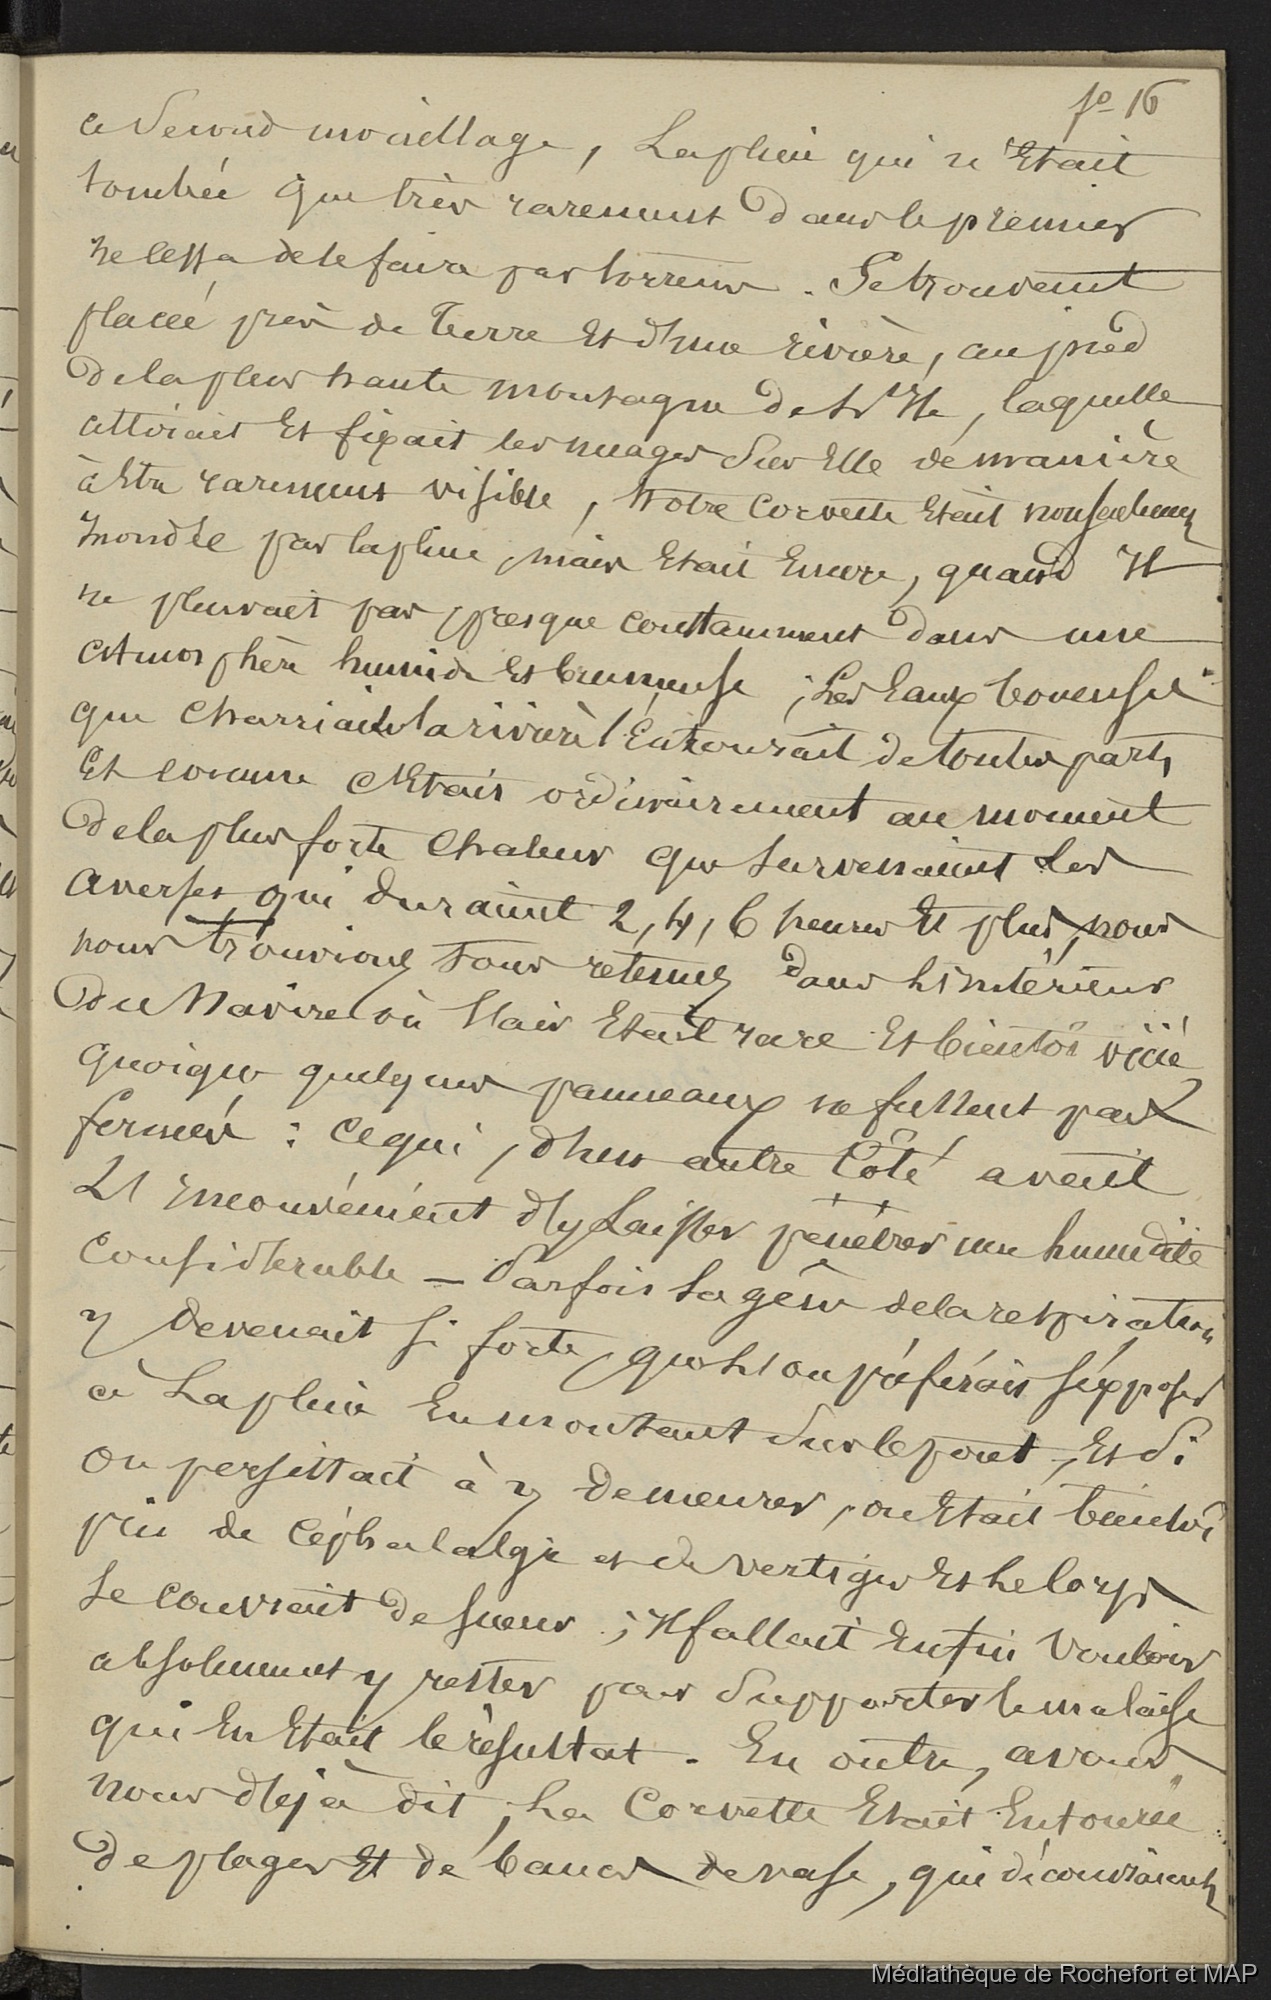 fo 16
ce second mouillage, La pluie qui n'était
tombée que très rarement dans le premier
ne cessa de le faire par torrens. Se trouvant
placée près de Terre Et d'une rivière, au pied
de la plus haute montagne de l'Ile, laquelle
attirait Et fixait les nuages sur Elle de manière
à Etre rarement visible, Notre Corvette était non seulement
Inondée par la pluie, mais Etait Encore, quand Il
ne pleuvait pas, presque constamment dans une
Atmosphère humide Et brumeuse ; Les Eaux boueuses
que charriait la rivière l'Entourait de toutes parts,
Et comme c'Etait ordinairement au moment
de la plus forte chaleur que survenaient Les
averses qui duraient 2, 4, 6 heures Et plus, nous
nous trouvions tous retenus dans l'Intérieur
du Navire où l'air Etait rare Et bientôt vicié
quoique quelques panneaux ne fussent pas
fermés : ce qui, d'un autre Côté avait
L'Inconvénient d'y Laisser pénétrer une humidité
considérable — Parfois la gêne de la respiration
y devenait si forte, que l'on préférait s'exposer
à La pluie En montant sur le pont, Et si
on persistait à y demeurer, on Etait bientôt
pris de Céphalalgie et de vertiges Et le Corps
se couvrait de sueur ; Il fallait Enfin Vouloir
absolument y rester pour supporter le malaise
qui En Etait le résultat. En outre, avons
nous déjà dit, La Corvette Etait Entourée
de plages Et de bancs de vase, qui découvraient
Médiathèque de Rochefort et MAP